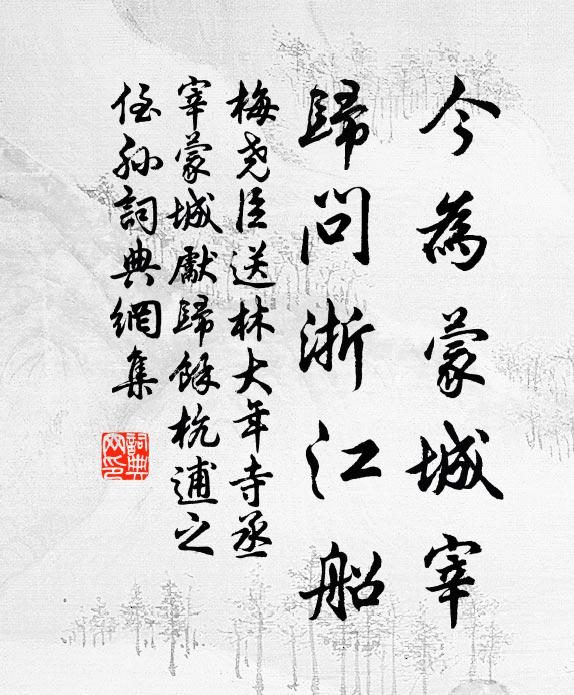 今為蒙城宰
歸問浙江船
梅堯臣送林大年寺丞
宰蒙城獻歸餘杭逋之
侄孫詞典網集
詞典網印